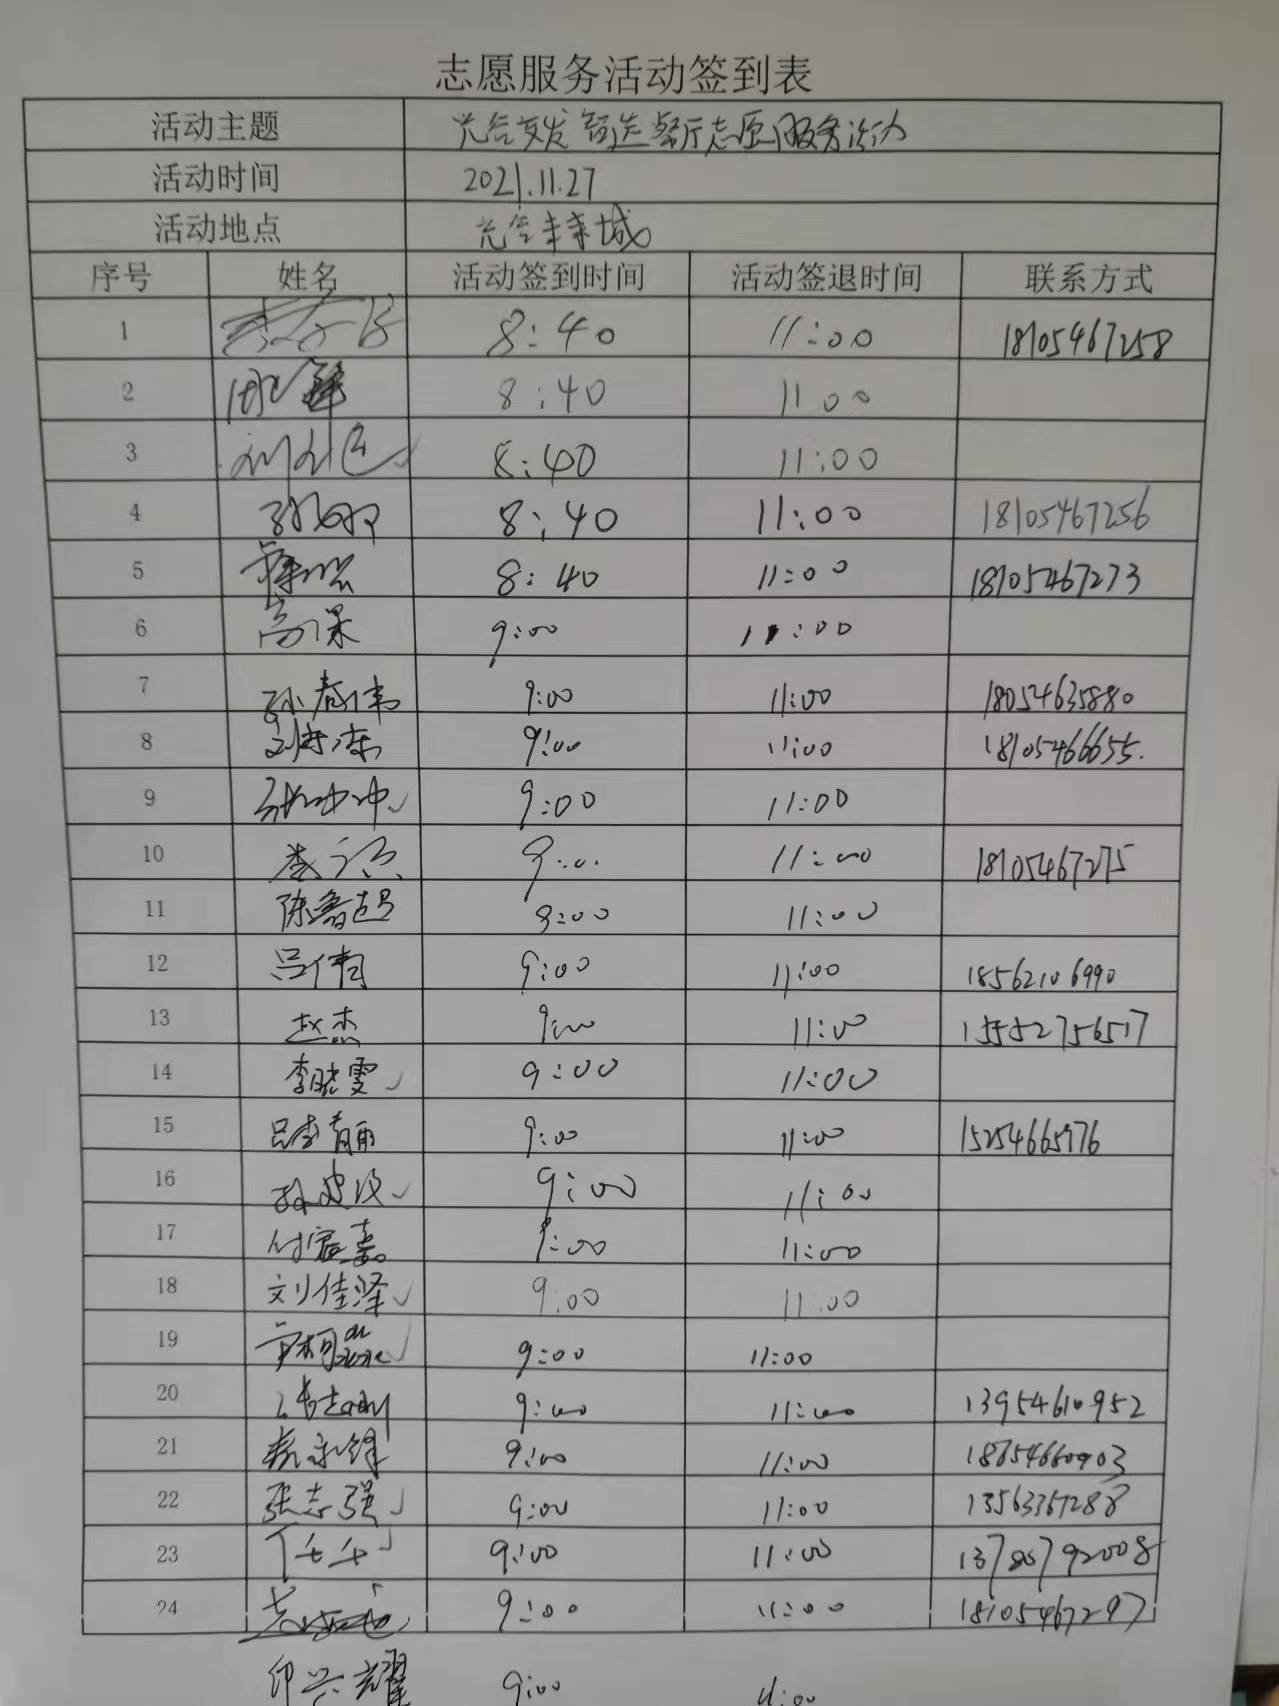 志愿服务活动签到表
活动主题 志愿服务活动
活动时间 2021.11.27
活动地点
序号 姓名 活动签到时间 活动签退时间 联系方式
1 8:40 11:00 18105467258
2 8:40 11 00
3 8:40 11:00
4 8:40 11:00 18105467256
5 8:40 11:00 18105467273
6 9:00 11:00
7 孙春伟 9:00 11:00 18054635880
8 9:00 11:00 18105466655.
9 张冲冲 9:00 11:00
10 11:00 18105467275
11 陈鲁超 9:00 11:00
12 吕伟 9:00 11:00 18562106990
13 赵杰 9:00 11:00 15552756517
14 李晓雯 9:00 11:00
15 9:00 11:00 15254665976
16 孙建设 9:00 11:00
17 付宸嘉 9:00 11:00
18 刘佳泽 9:00 11:00
19 9:00 11:00
20 9:00 11:00 13954610952
21 9:00 11:00
22 张志强 9:00 11:00 13563367288
23 9:00 11:00
24 9:00 11:00 18105467297
印兴耀 9:00 11:00